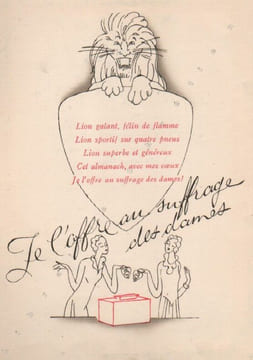 Lion galant, félin de flamme
Lion sportif sur quatre pneus
Lion superbe et généreux
Cet almanach, avec mes vœux
Je l'offre au suffrage des dames!
Je l'offre au suffrage
des dames